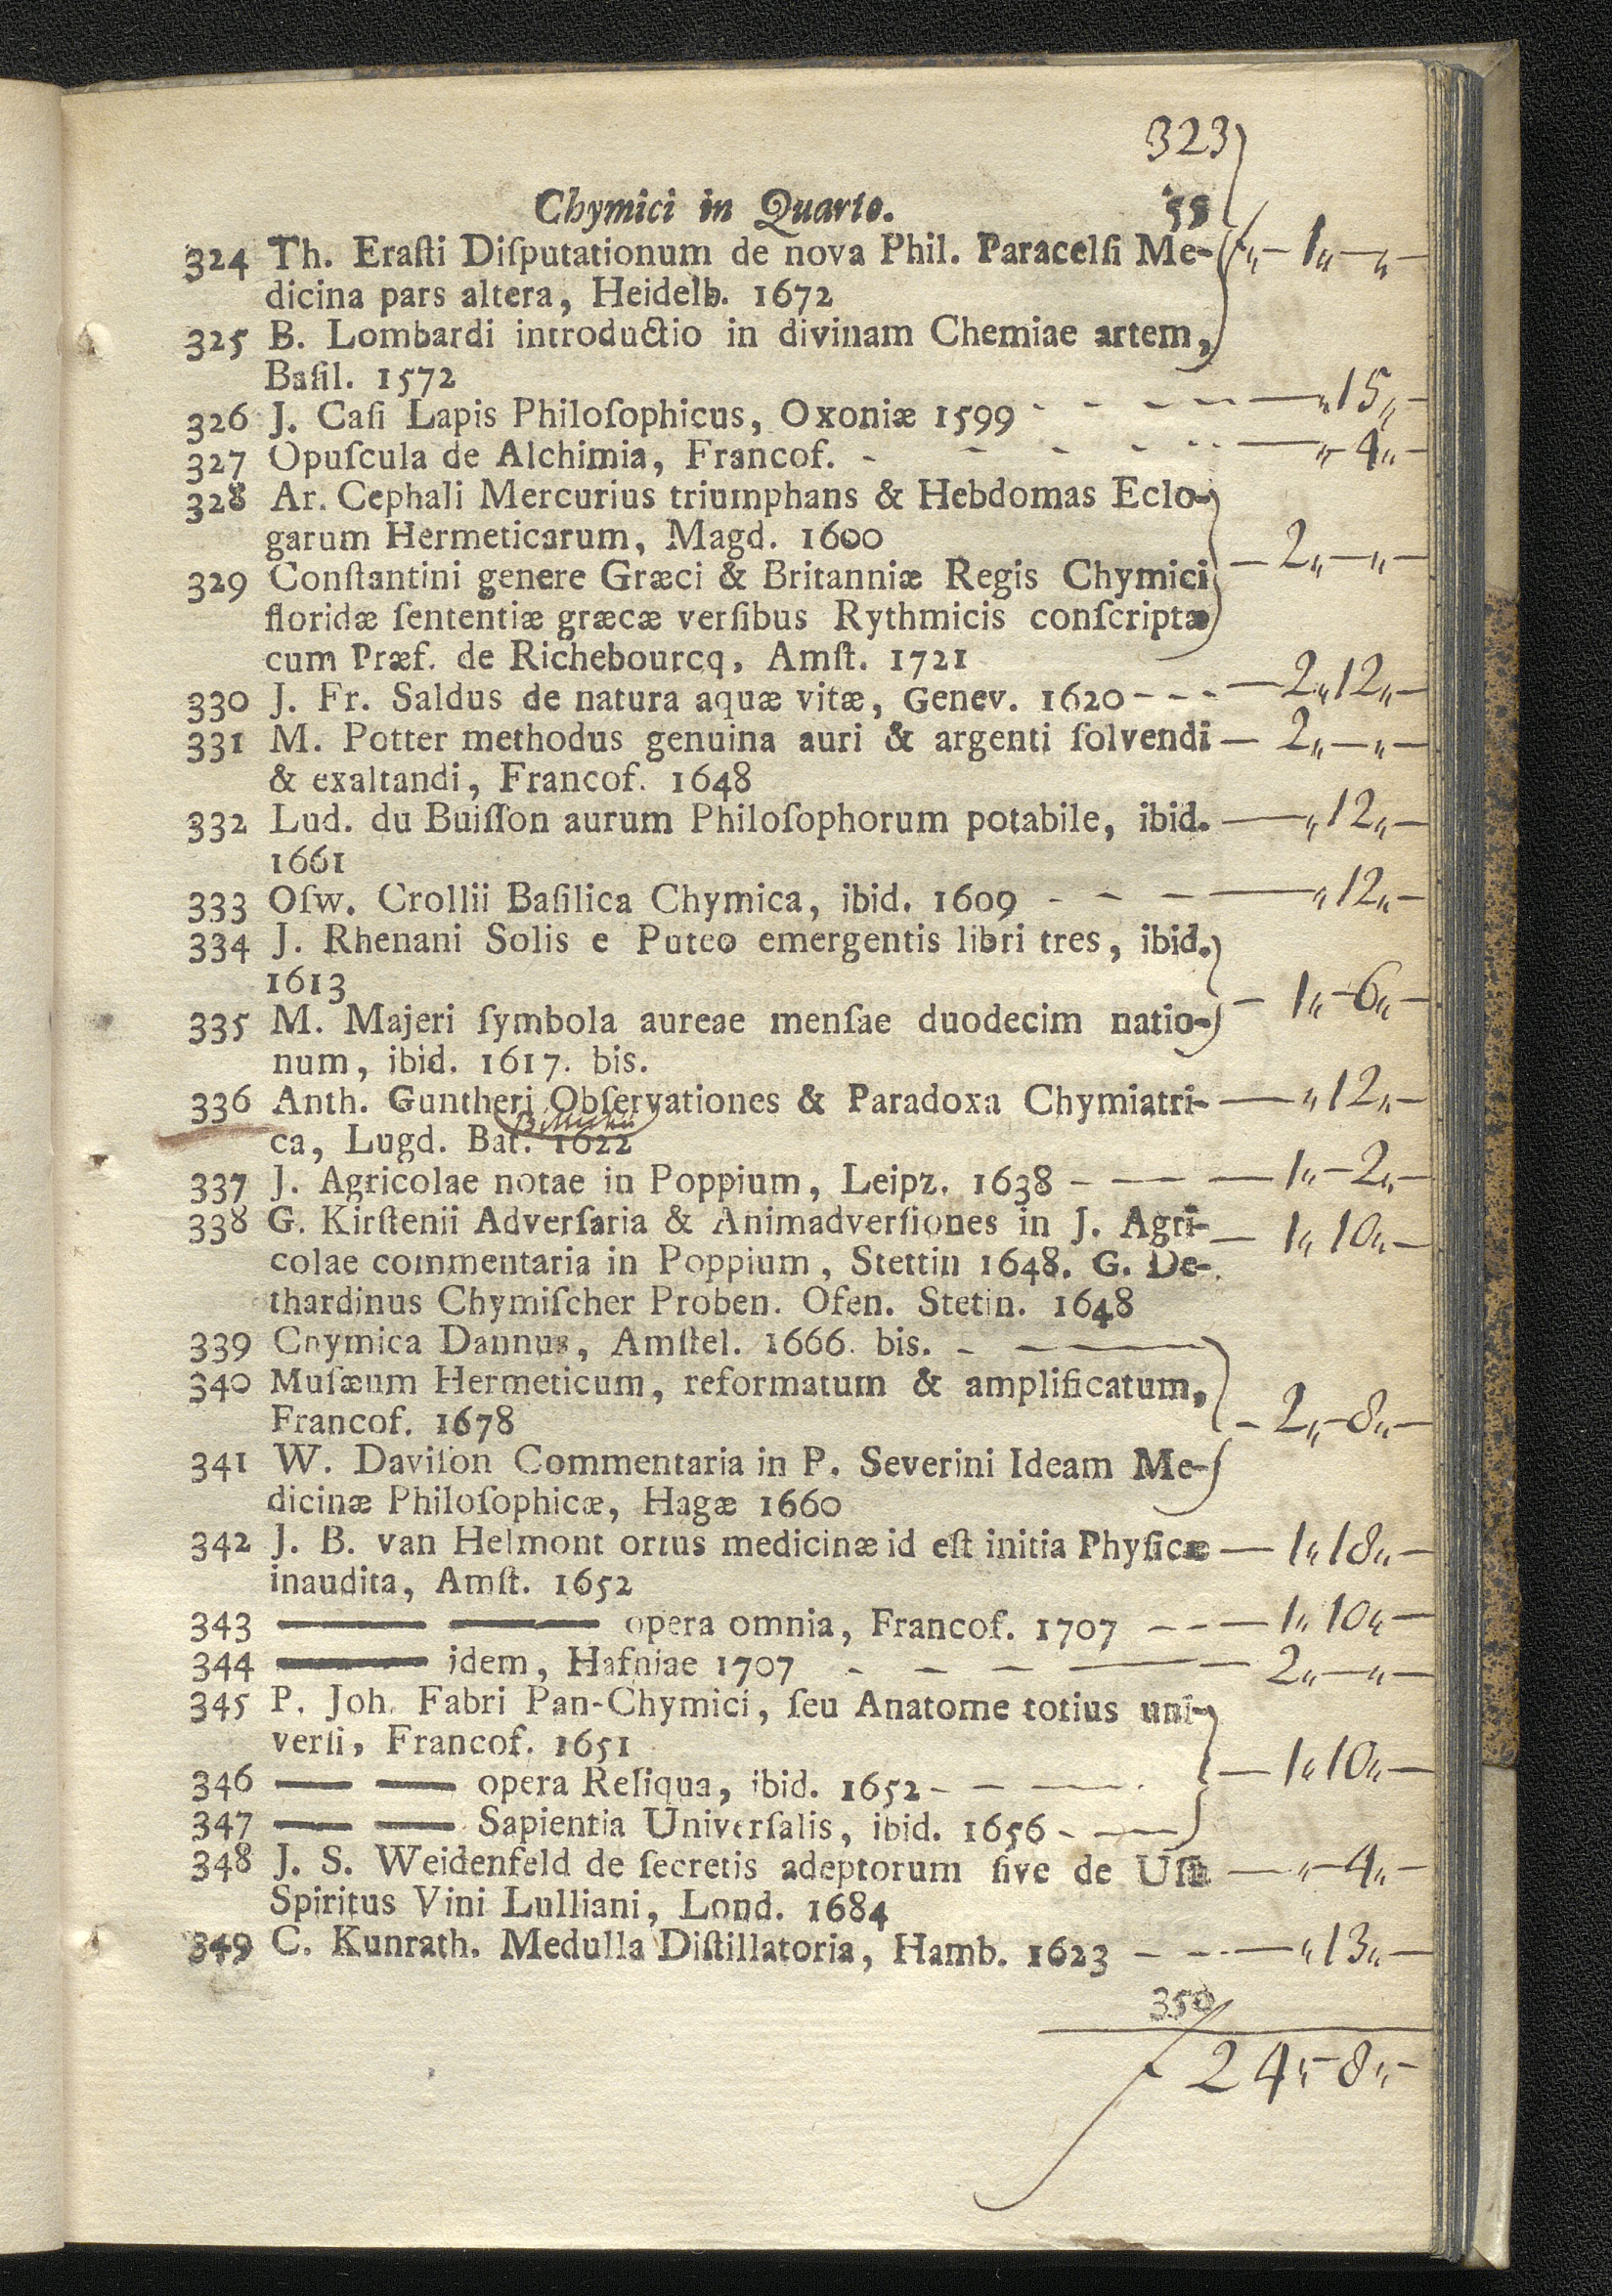 323
Chymici in Quarto. 55
324 Th. Eraſti Diſputationum de nova Phil. Paracelſi Me- f „ — 1 „ — „ —
dicina pars altera, Heidelb. 1672
325 B. Lombardi introductio in divinam Chemiae artem,
Baſil. 1572
326 J. Caſi Lapis Philoſophicus, Oxoniæ 1599 - - - - — „ 15 „ —
327 Opuſcula de Alchimia, Francof. - - - - - — „ 4 „ —
328 Ar. Cephali Mercurius triumphans & Hebdomas Eclo-
garum Hermeticarum, Magd. 1600
— 2 „ — „ —
329 Conſtantini genere Græci & Britanniæ Regis Chymici
floridæ ſententiæ græcæ verſibus Rythmicis conſcriptæ
cum Præf. de Richebourcq, Amſt. 1721
330 J. Fr. Saldus de natura aquæ vitæ, Genev. 1620 - - - — 2 „ 12 „ —
331 M. Potter methodus genuina auri & argenti ſolvendi — 2 „ — „ —
& exaltandi, Francof. 1648
332 Lud. du Buiſſon aurum Philoſophorum potabile, ibid. — „ 12 „ —
1661
333 Oſw. Crollii Baſilica Chymica, ibid. 1609 - - - — „ 12 „ —
334 J. Rhenani Solis e Puteo emergentis libri tres, ibid.
1613
— 1 „ — 6 „ —
335 M. Majeri ſymbola aureae menſae duodecim natio-
num, ibid. 1617. bis.
336 Anth. Guntheri Obſervationes & Paradoxa Chymiatri- — „ 12 „ —
ca, Lugd. Bat. 1622
337 J. Agricolae notae in Poppium, Leipz. 1638 - — — 1 „ — 2 „ —
338 G. Kirſtenii Adverſaria & Animadverſiones in J. Agri- — 1 „ 10 „ —
colae commentaria in Poppium, Stettin 1648. G. De-
thardinus Chymiſcher Proben. Ofen. Stetin. 1648
339 Chymica Dannus, Amſtel. 1666. bis. - —
340 Muſæum Hermeticum, reformatum & amplificatum,
Francof. 1678
— 2 „ — 8 „ —
341 W. Daviſon Commentaria in P. Severini Ideam Me-
dicinæ Philoſophicæ, Hagæ 1660
342 J. B. van Helmont ortus medicinæ id eſt initia Phyſicæ — 1 „ 18 „ —
inaudita, Amſt. 1652
343 — — opera omnia, Francof. 1707 - - — 1 „ 10 „ —
344 — idem, Hafniae 1707 - - - — 2 „ — „ —
345 P. Joh. Fabri Pan-Chymici, ſeu Anatome totius uni-
verſi, Francof. 1651
346 — — opera Reliqua, ibid. 1652 - - — — 1 „ 10 „ —
347 — — Sapientia Univerſalis, ibid. 1656 - —
348 J. S. Weidenfeld de ſecretis adeptorum ſive de Uſu — „ — 4 „ —
Spiritus Vini Lulliani, Lond. 1684
349 C. Kunrath. Medulla Diſtillatoria, Hamb. 1623 - - — „ 13 „ —
350
f 24 „ — 8 „ —